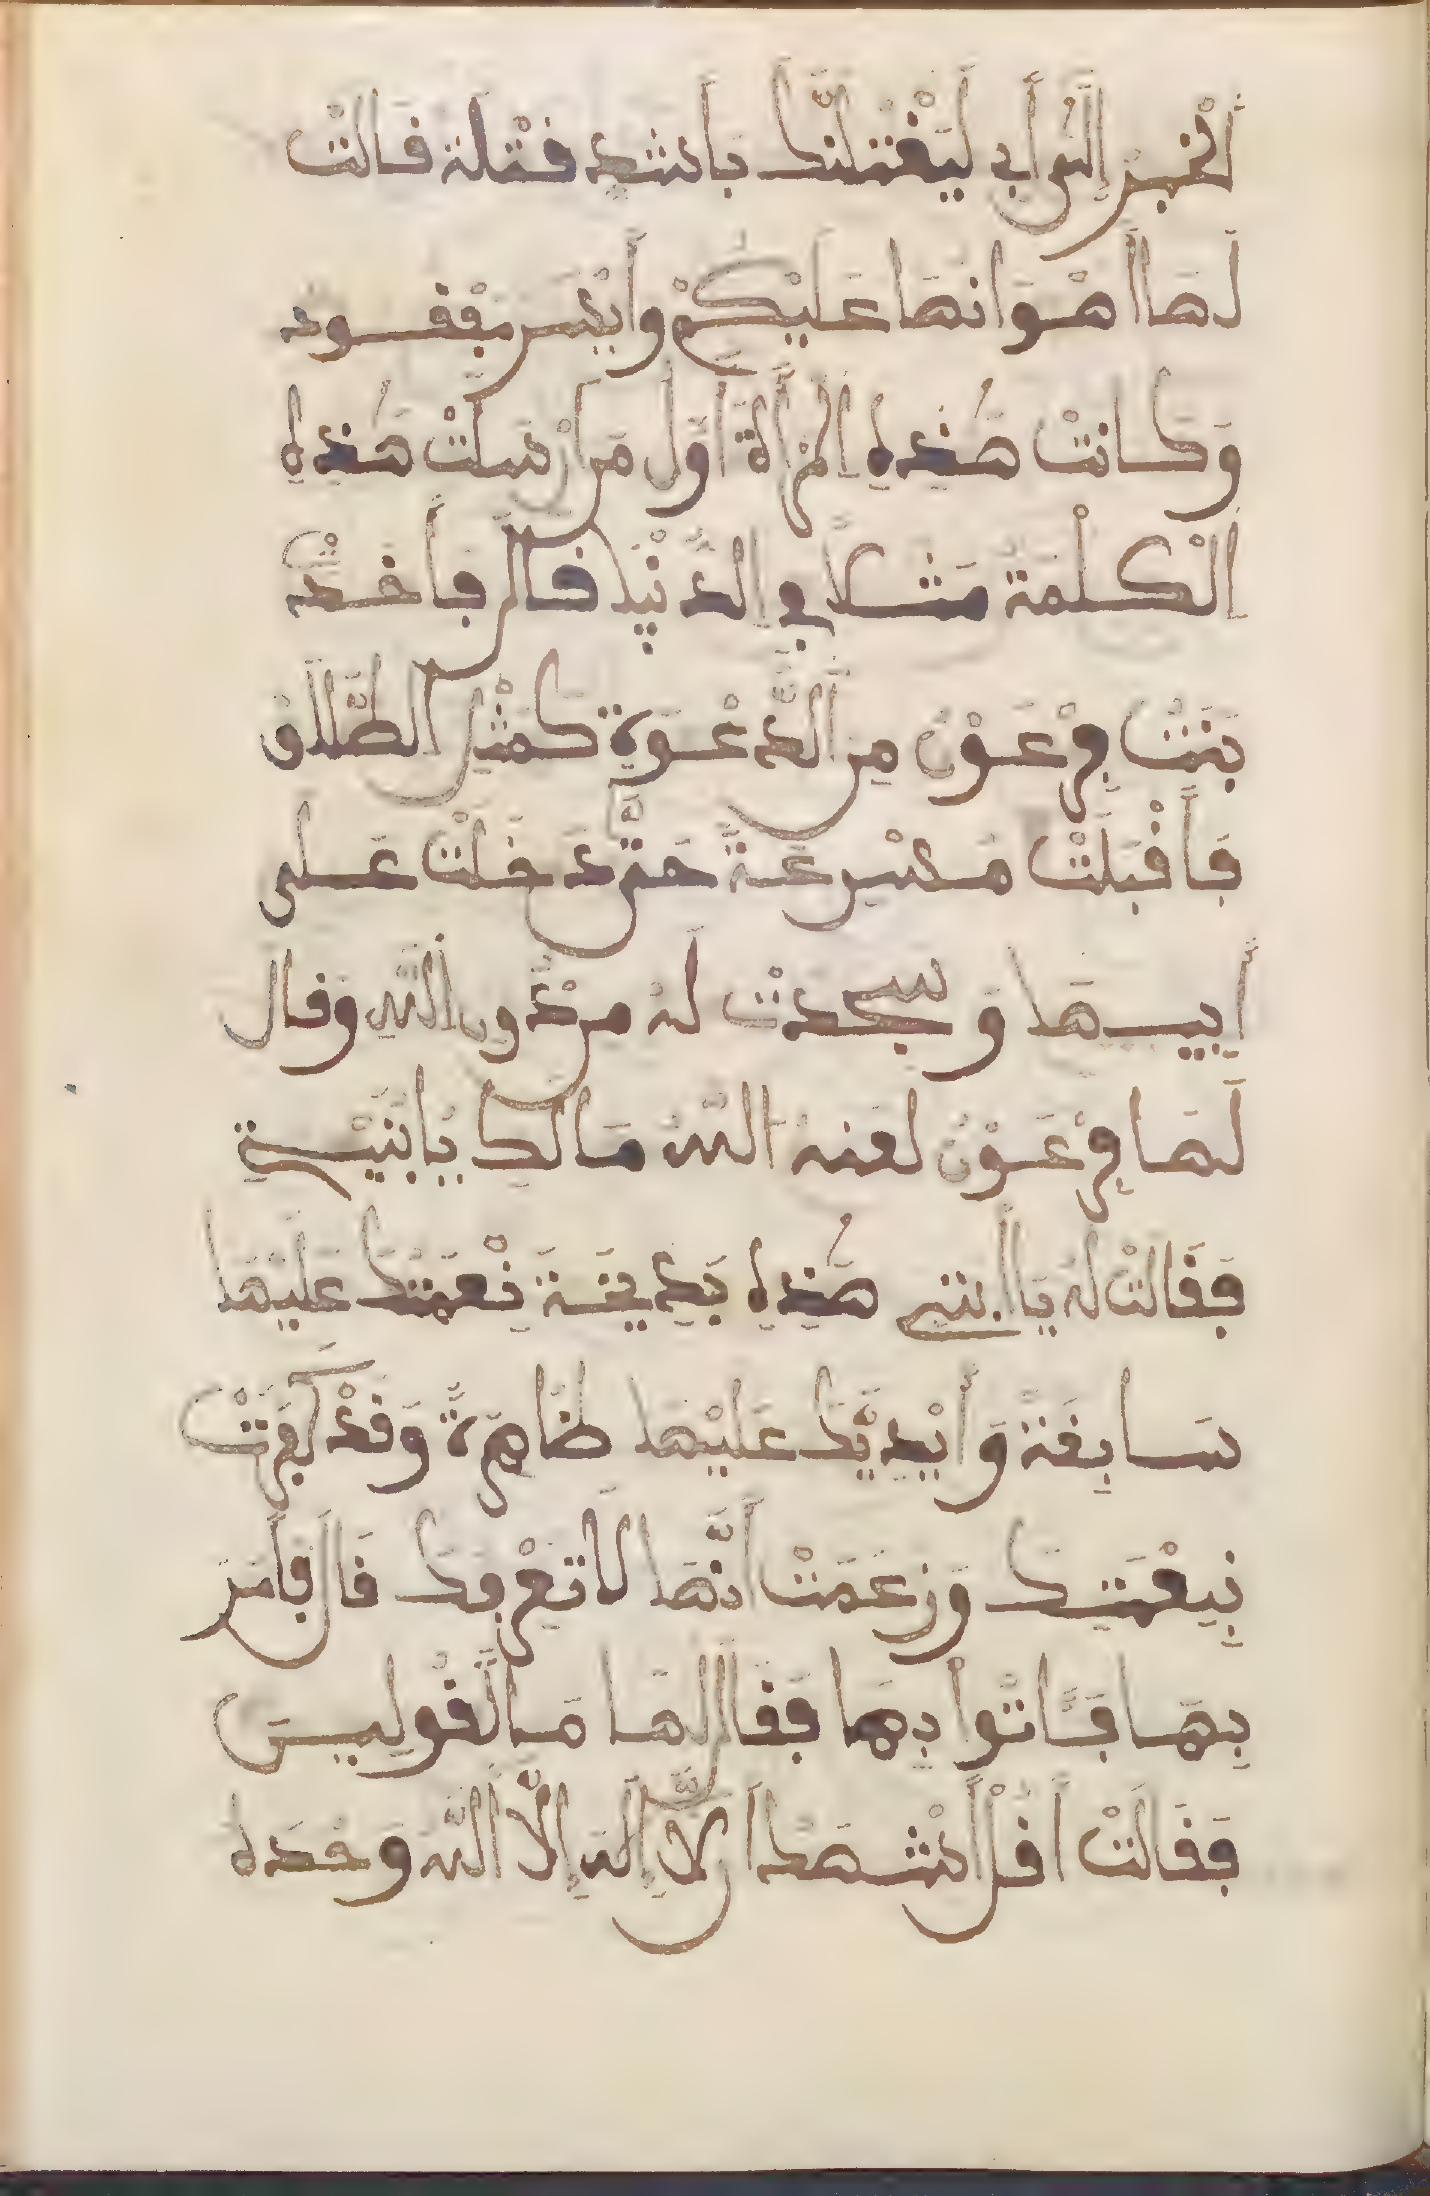 أخبر إلى أبي ليقتلنك بأشد قتلة قالت
لها اهوانها عليكم وأيسر بفقود
وكانت هذه المرأة أول من أرسلت هذه
الكلمة مثلا في الدنيا قال فأخذت
بنت فرعون من الدعوة كمثل الطلاق
فأقبلت مسرعة حتى دخلت على
أبيها وسجدت له من دون الله وقال
لها فرعون لعنه الله مالك يا بنية
فقالت له يا ابتي هذه بديخة نعمتك عليها
سابغة وأيديك عليها ظاهرة وقد كفرت
بنعمتك وزعمت أنها لا تعرفك قال فأمر
بها فاتوا بها فقال لها ما تقولين
فقالت اقل أشهد أن لا إله إلا الله وحده